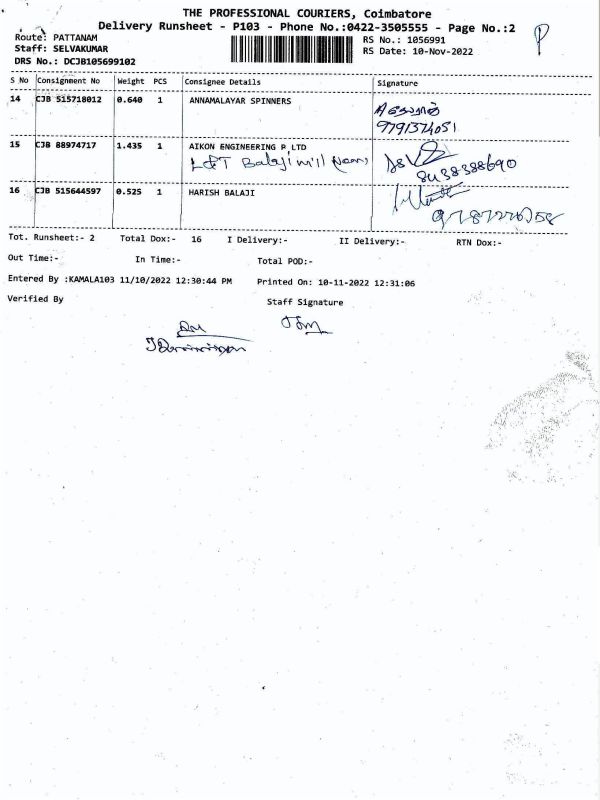 THE PROFESSIONAL COURIERS, Coimbatore
Delivery Runsheet - P103 - Phone No.:0422-3505555 - Page No.:2
P
Route: PATTANAM
RS No.: 1056991
Staff: SELVAKUMAR
RS Date: 10-Nov-2022
DRS No.: DCJB105699102
S No Consignment No Weight PCS Consignee Details Signature
14 CJB 515718012 0.640 1 ANNAMALAYAR SPINNERS
9791374051
15 CJB 88974717 1.435 1 AIKON ENGINEERING P LTD
L&T Balaji mill
8438388690
16 CJB 515644597 0.525 1 HARISH BALAJI
Tot. Runsheet:- 2 Total Dox:- 16 I Delivery:- II Delivery:- RTN Dox:-
Out Time:- In Time:- Total POD:-
Entered By :KAMALA103 11/10/2022 12:30:44 PM Printed On: 10-11-2022 12:31:06
Verified By Staff Signature